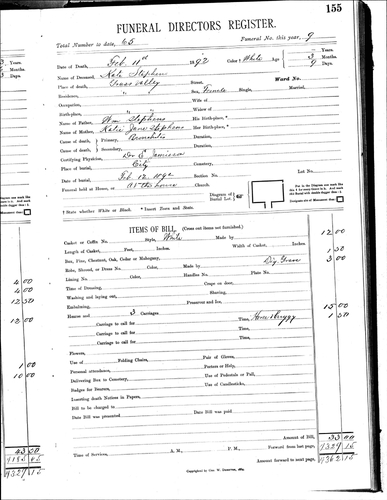 155
FUNERAL DIRECTORS REGISTER.
Total Number to date, 65 Funeral No. this year, 9
Date of Death, Feb 11st 1892 Color † White Age Years.
Name of Deceased, Kate Stephens 3 Months.
Place of death, Grass Valley Street. 9 Days.
Residence, " " Sex, Female Single, Married, Ward No.
Occupation, Wife of
Birthplace, * " " Widow of
Name of Father, Wm Stephens His Birthplace, *
Name of Mother, Katie Jane Stephens Her Birthplace, *
Cause of death, Primary, Bronchitis Duration,
Cause of death, Secondary, Duration,
Certifying Physician, Dr E Jamison
Place of burial, City Cemetery,
Date of burial, Feb 12 1892 Section No.
Funeral held at House, or at the house Church.
Diagram of Burial Lot.
† State whether White or Black. * Insert Town and State.
ITEMS OF BILL. (Cross out items not furnished).
Casket or Coffin No. Style, White Made by 12 00
Length of Casket, Feet, Inches. Width of Casket, Inches. 1 50
Box, Pine, Chestnut, Oak, Cedar or Mahogany, Dig Grave 3 00
Robe, Shroud, or Dress No. Color, Made by
Lining No. Color, Handles No. Plate No.
Time of Dressing, Crape on door,
Washing and laying out, Shaving,
Embalming, Preserver and Ice,
Hearse and 3 Carriages 15 00
Carriage to call for Time, Horse & Buggy 1 50
Carriage to call for Time,
Carriage to call for Time,
Carriage to call for Time,
Flowers,
Use of Folding Chairs, Pair of Gloves,
Personal attendance, Porters or Help,
Delivering Box to Cemetery, Use of Pedestals or Pall,
Badges for Bearers, Use of Candlesticks,
Inserting Death Notices in Papers,
Bill to be charged to
Date Bill was paid Date Bill was paid
Amount of Bill, 33 00
Time of Services, A. M., P. M., Forward from last page, 9329 15
Amount forward to next page, 9362 15